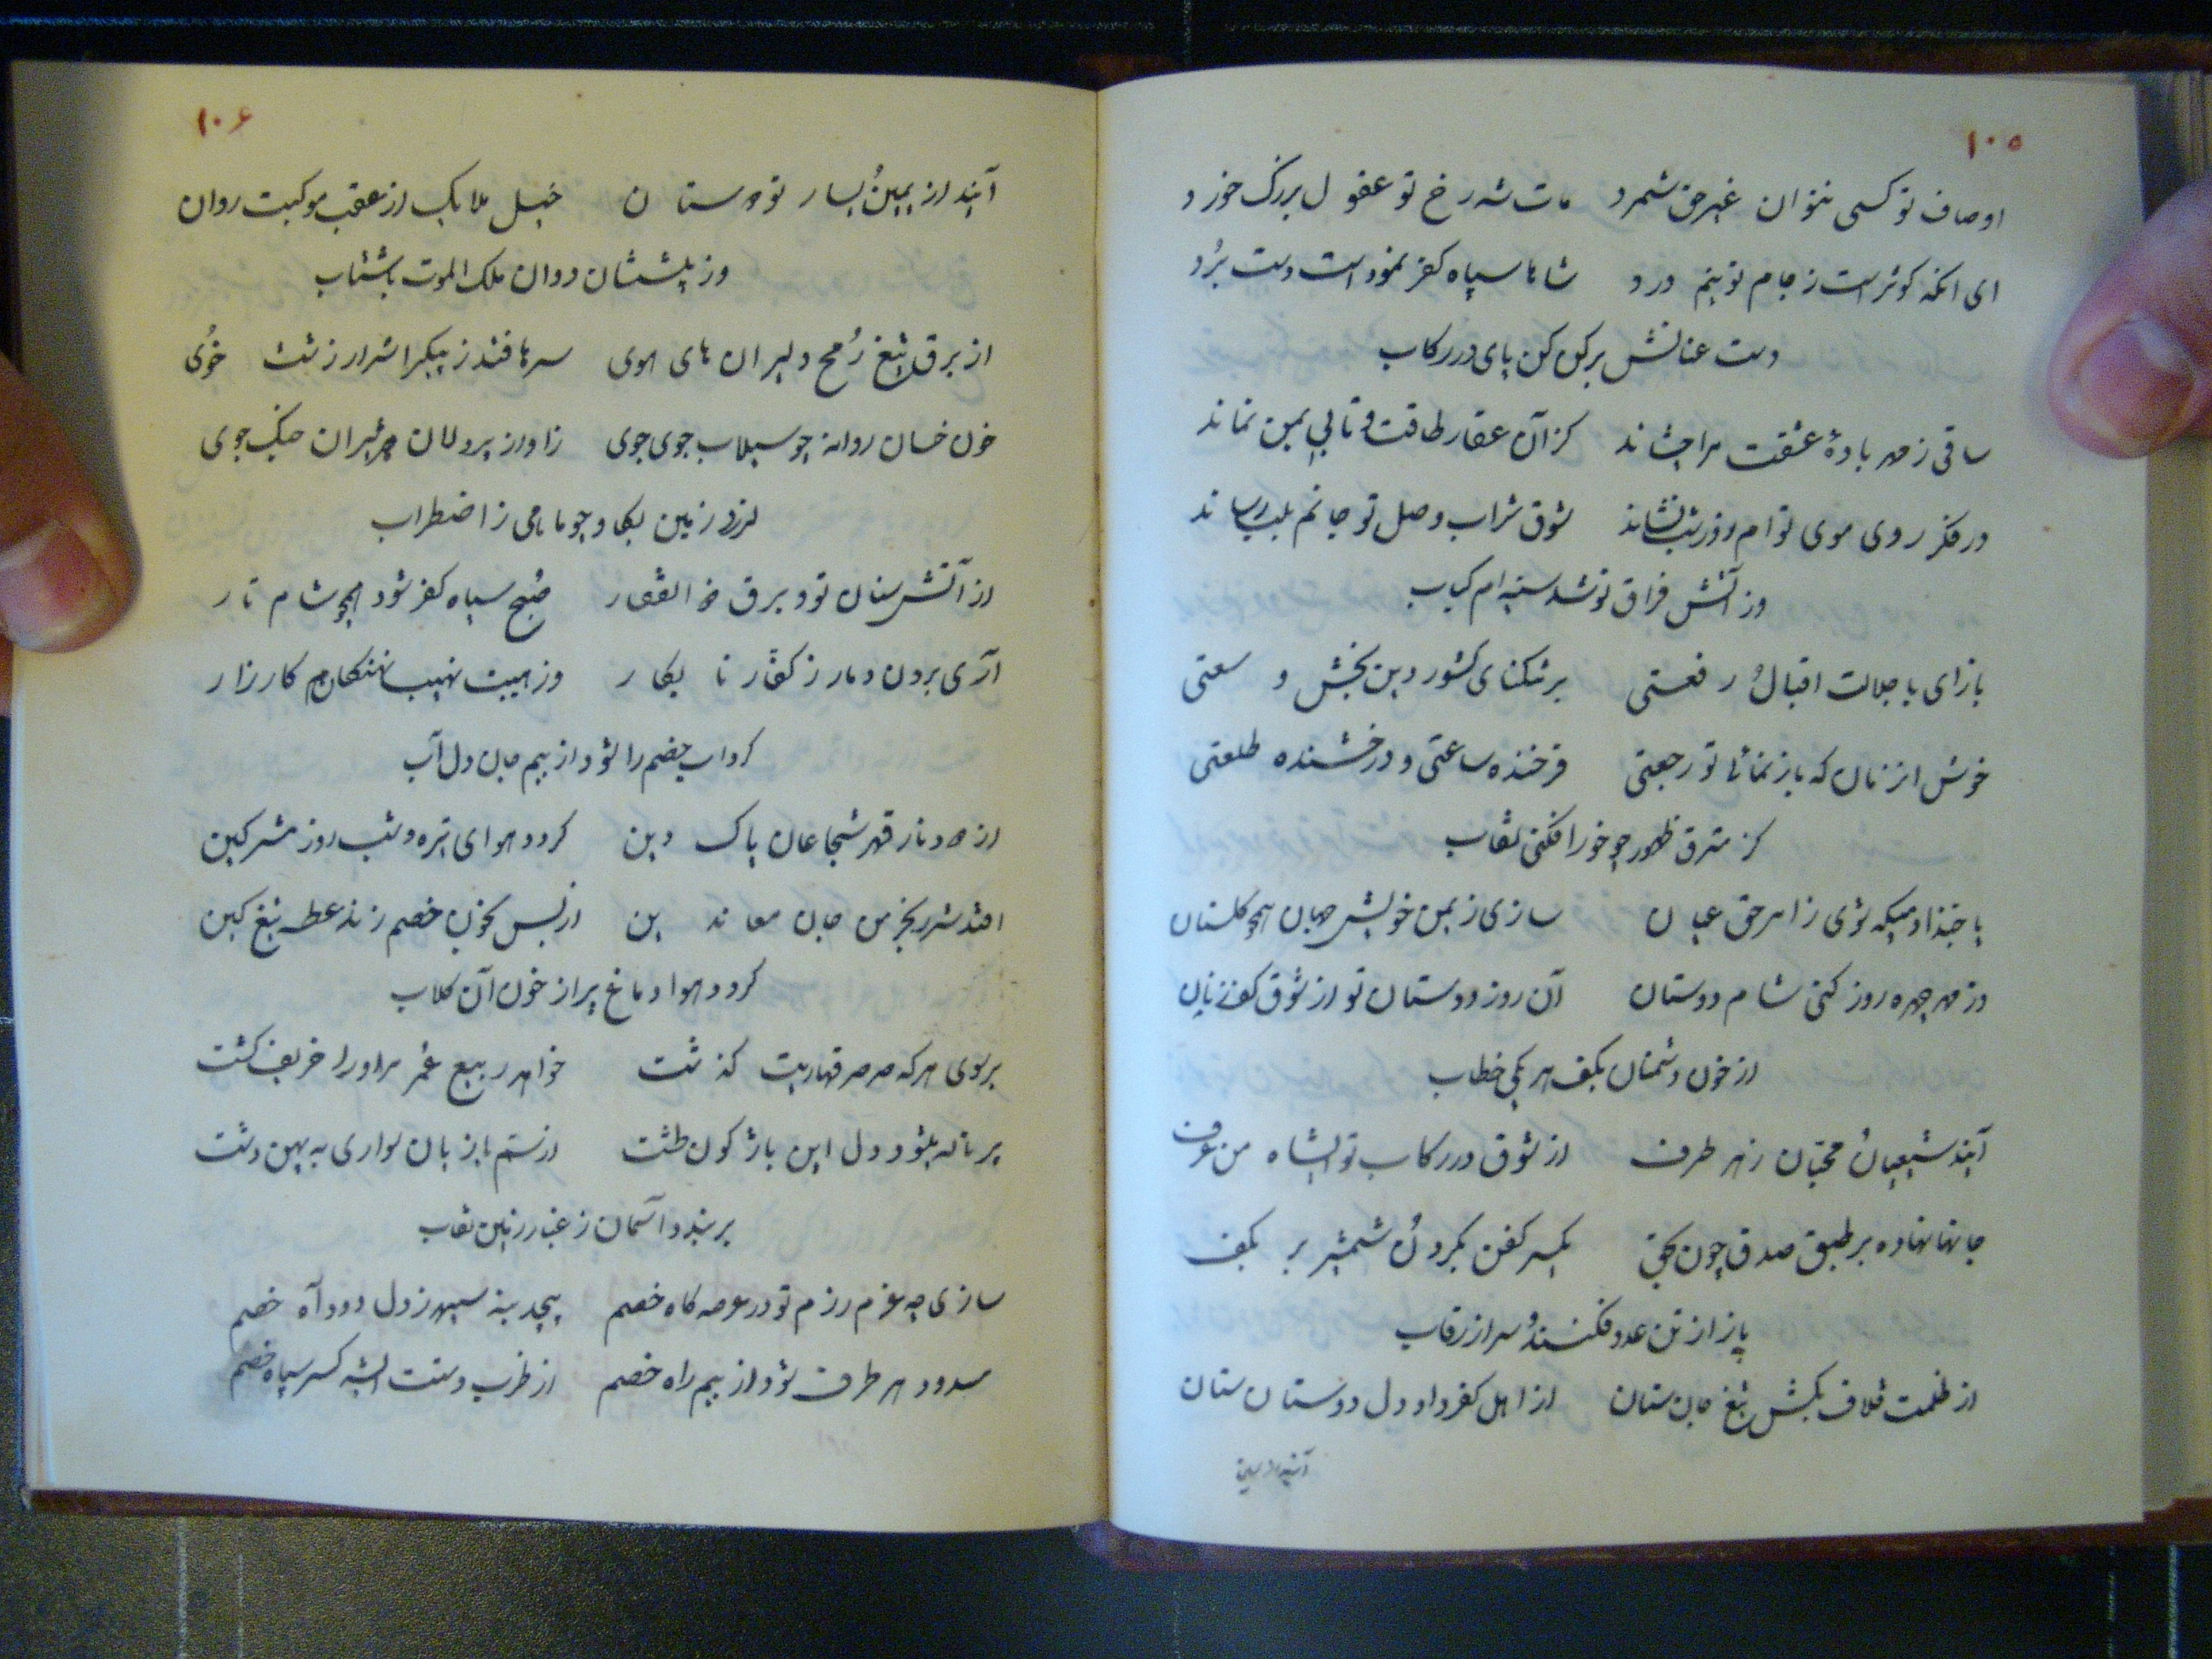 ۱۰۵
اوصاف تو کسی نتوان غیر حق شمرد مات شه رخ تو عقول بزرگ خورد
ای آنکه کوثر است ز جام تو نیم درد شاها سپاه کفر نمود است دست برد
دست عنانش برکن کن پای در رکاب
ساقی ز مهر باده عشقت مرا چشاند کز آن عقار طاقت و تابی بمن نماند
در فکر روی موی توام روز شب نشاند شوق شراب وصل تو جانم بلب رساند
وز آتش فراق تو شد سینه ام کباب
بازای با جلالت اقبال و رفعتی بر تنگنای کشور دین بخش وسعتی
خوش آن زمان که باز نمائی تو رجعتی فرخنده ساعتی و درخشنده طلعتی
کز مشرق ظهور چو خور افکنی نقاب
یا حبذا دمیکه شوی ز امر حق عیان سازی ز یمن خویش جهان همچو گلستان
وز مهر چهره روز کنی شام دوستان آن روز دوستان تو از شوق کف زنان
از خون دشمنان بکف هر یکی خطاب
آیند شیعیان و محبان ز هر طرف از شوق در رکاب تو ایشاه من عرف
جانها نهاده بر طبق صدق چون یکسر کفن بگردن و شمشیر بر بکف
باز از تن عدو فکنند و سر از رقاب
از ظلمت غلاف بکش تیغ جان ستان از اهل کفر داد دل دوستان ستان
آیند از یمین
۱۰۶
آیند از یمین و یسار تو دوستان خیل ملایک از عقب موکبت روان
وز پیششان دوان ملک الموت باشتاب
از برق تیغ رمح دلیران های هوی سرها فتد ز پیکر اشرار زشت خوی
خون خسان روانه چو سیلاب جوی جوی ز آواز پردلان و شیران جنگ جوی
لرزد زمین بگاو چو ماهی ز اضطراب
از آتش سنان تو و برق ذوالفقار صبح سپاه کفر شود همچو شام تار
آری برون دمار ز کفار نابکار وز هیبت نهیب نهنگان کارزار
گرداب خصم را شود از بیم جان دل آب
از دود نار قهر شجاعان پاک دین گردد هوای تیره و شب روز مشرکین
افتد شرر بخرمن جان معاندین از بس بخون خصم زند عطسه تیغ کین
گردد هوا دماغ پر از خون آن کلاب
بر بوی هر که صرصر قهاریت گذشت خواهد ربیع عمر مر او را خریف گشت
پر ناله بشود دل این باژگون طشت از ستم بادپایان سواری به پهن دشت
بربندد آسمان ز غبار زمین نقاب
سازی چه عزم رزم تو در عرصه گاه خصم پیچد به سپهر ز دل دود آه خصم
مسدود هر طرف شود از بیم راه خصم از ضرب دستت ایشه سپاه خصم